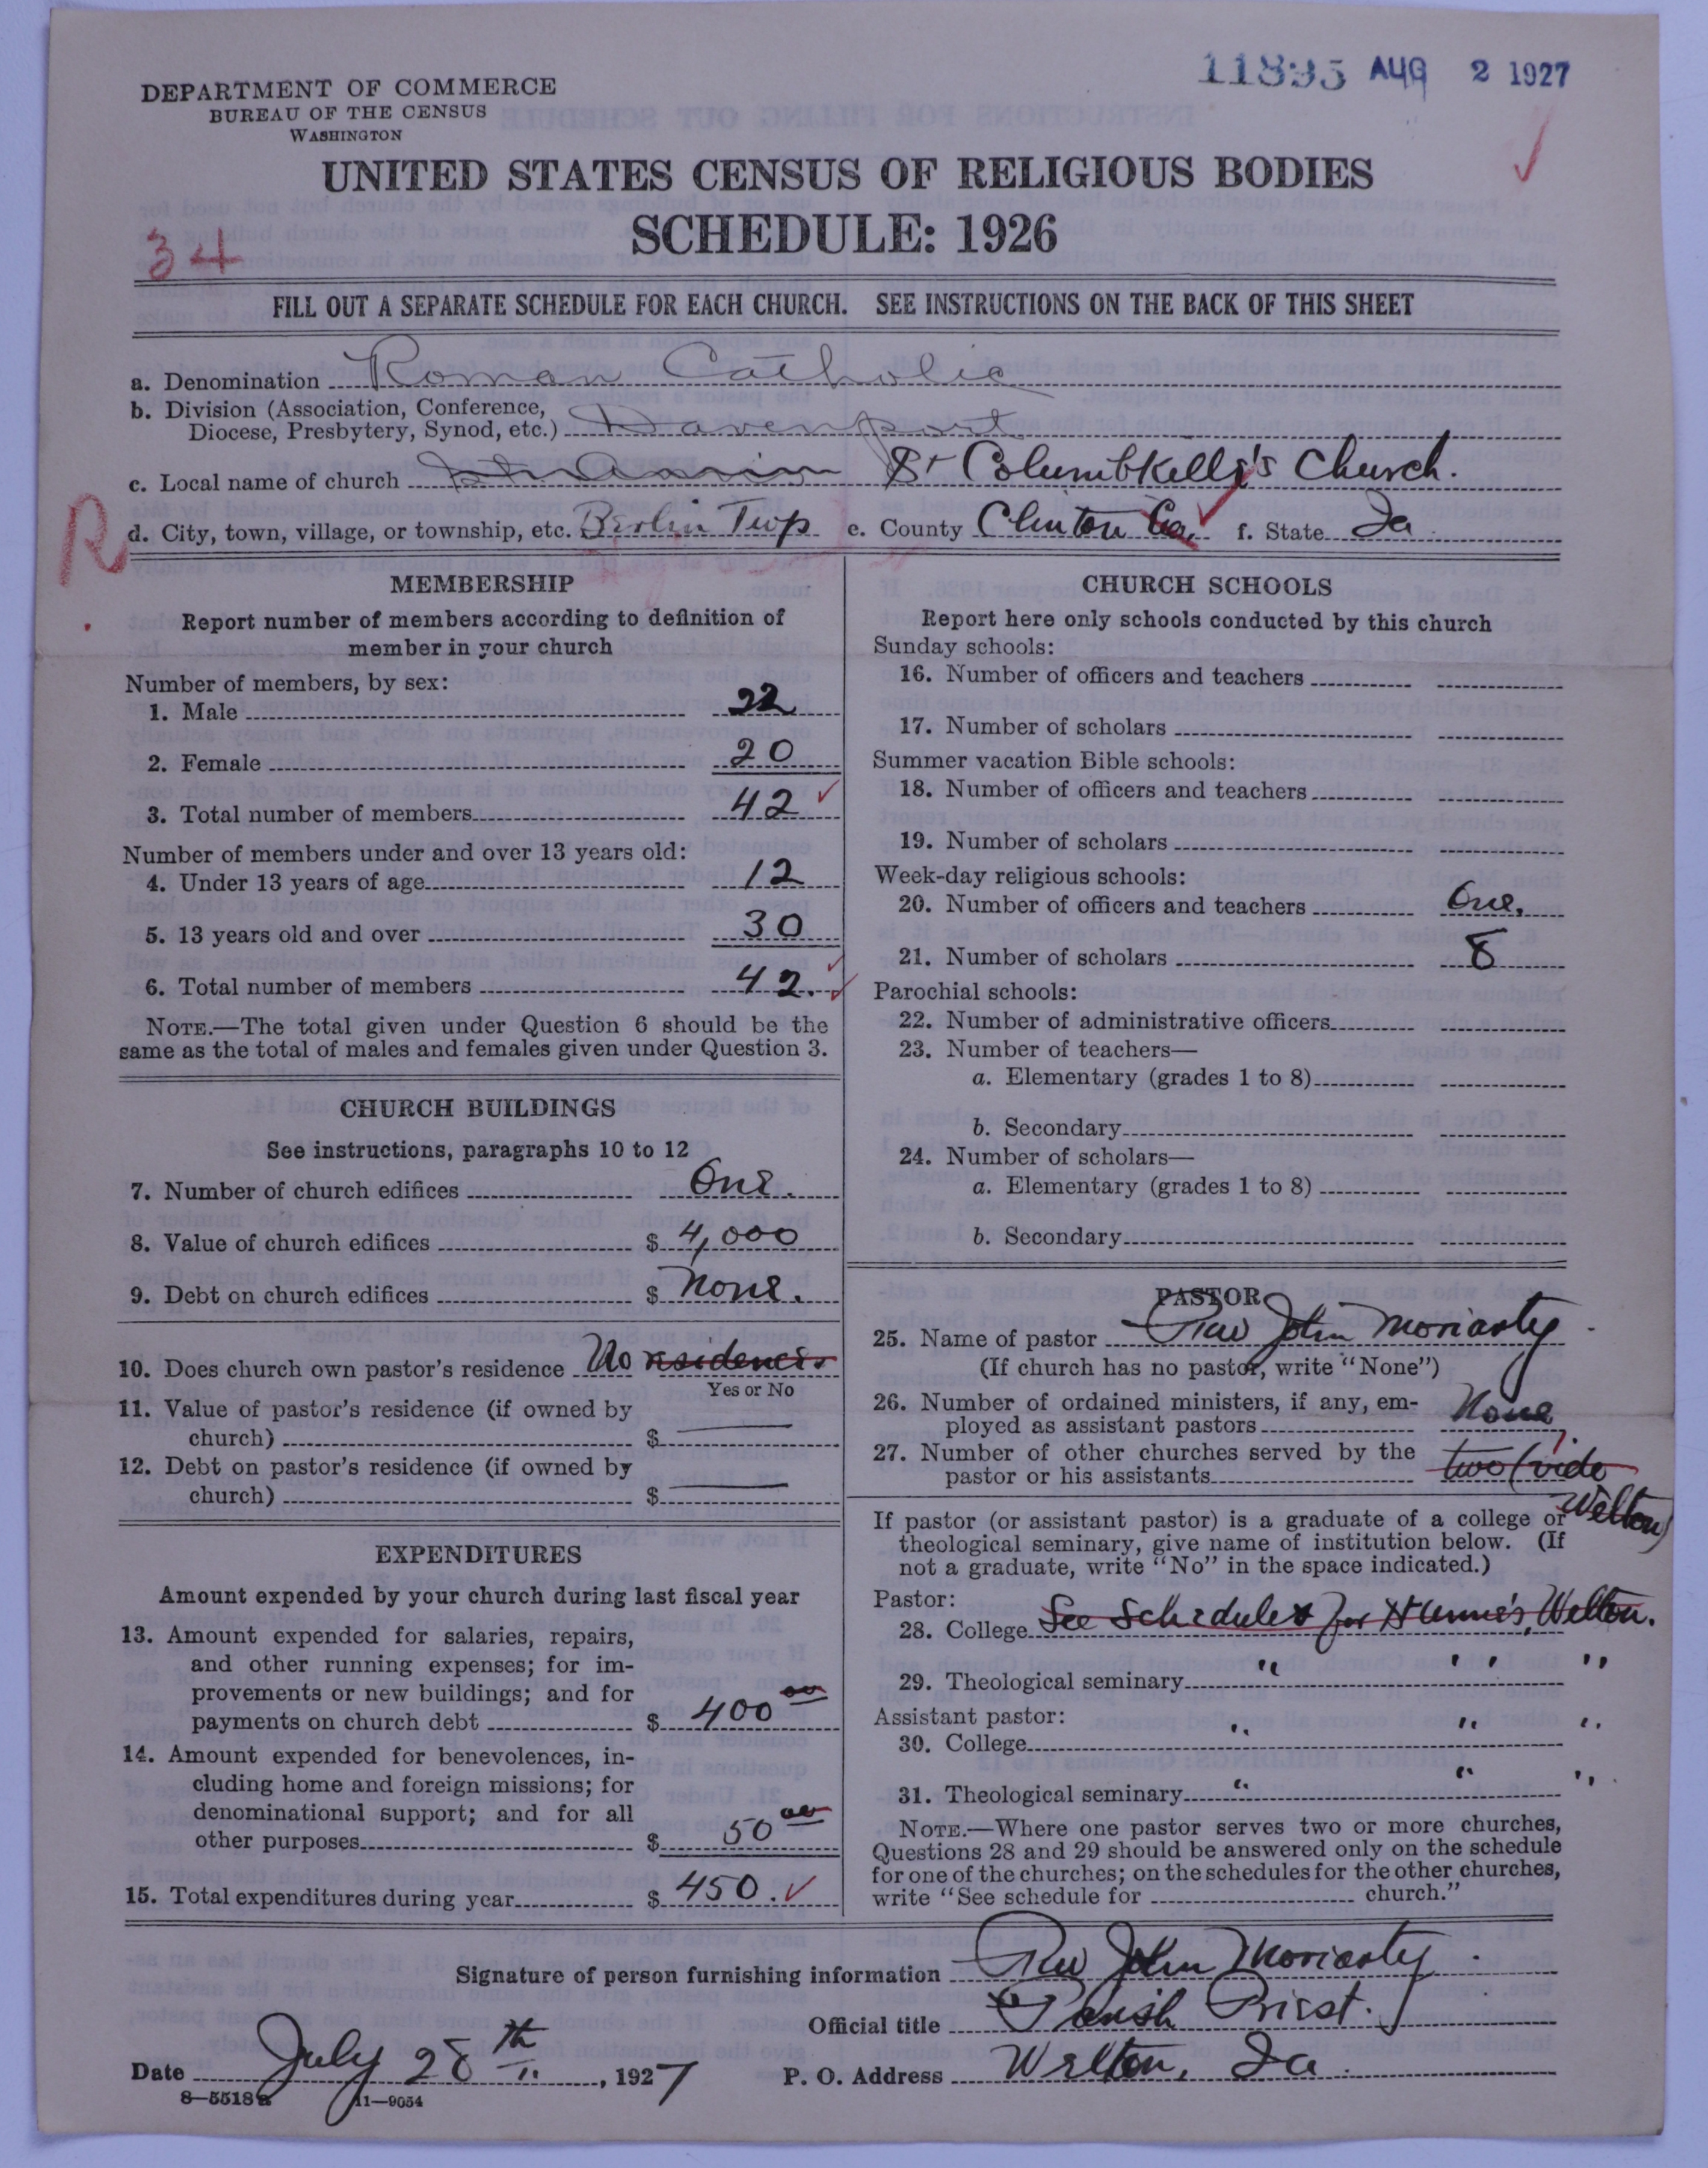 11895 AUG 2 1927
DEPARTMENT OF COMMERCE
BUREAU OF THE CENSUS
WASHINGTON
UNITED STATES CENSUS OF RELIGIOUS BODIES
SCHEDULE: 1926
34
FILL OUT A SEPARATE SCHEDULE FOR EACH CHURCH. SEE INSTRUCTIONS ON THE BACK OF THIS SHEET
a. Denomination Roman Catholic
b. Division (Association, Conference,
Diocese, Presbytery, Synod, etc.) Davenport
c. Local name of church St Columbkille's Church.
R
d. City, town, village, or township, etc. Berlin Twp e. County Clinton Co. f. State Ia
MEMBERSHIP
Report number of members according to definition of
member in your church
Number of members, by sex:
1. Male 22
2. Female 20
3. Total number of members 42
Number of members under and over 13 years old:
4. Under 13 years of age 12
5. 13 years old and over 30
6. Total number of members 42.
NOTE.—The total given under Question 6 should be the
same as the total of males and females given under Question 3.
CHURCH BUILDINGS
See instructions, paragraphs 10 to 12
7. Number of church edifices One.
8. Value of church edifices $ 4,000
9. Debt on church edifices $ None.
10. Does church own pastor's residence No residence.
Yes or No
11. Value of pastor's residence (if owned by
church) $ —
12. Debt on pastor's residence (if owned by
church) $ —
EXPENDITURES
Amount expended by your church during last fiscal year
13. Amount expended for salaries, repairs,
and other running expenses; for im-
provements or new buildings; and for
payments on church debt $ 400 00
14. Amount expended for benevolences, in-
cluding home and foreign missions; for
denominational support; and for all
other purposes $ 50 00
15. Total expenditures during year $ 450.
CHURCH SCHOOLS
Report here only schools conducted by this church
Sunday schools:
16. Number of officers and teachers
17. Number of scholars
Summer vacation Bible schools:
18. Number of officers and teachers
19. Number of scholars
Week-day religious schools:
20. Number of officers and teachers One.
21. Number of scholars 8
Parochial schools:
22. Number of administrative officers
23. Number of teachers—
a. Elementary (grades 1 to 8)
b. Secondary
24. Number of scholars—
a. Elementary (grades 1 to 8)
b. Secondary
PASTOR
25. Name of pastor Rev John Moriarty
(If church has no pastor, write "None")
26. Number of ordained ministers, if any, em-
ployed as assistant pastors None
27. Number of other churches served by the
pastor or his assistants two (vide
Welton)
If pastor (or assistant pastor) is a graduate of a college or
theological seminary, give name of institution below. (If
not a graduate, write "No" in the space indicated.)
Pastor:
28. College See Schedule for St Anne's, Welton.
29. Theological seminary " " "
Assistant pastor:
30. College " " "
31. Theological seminary " " "
NOTE.—Where one pastor serves two or more churches,
Questions 28 and 29 should be answered only on the schedule
for one of the churches; on the schedules for the other churches,
write "See schedule for church."
Signature of person furnishing information Rev John Moriarty
Official title Parish Priest.
Date July 28th, 1927 P. O. Address Welton, Ia.
8—5518a 11—9054